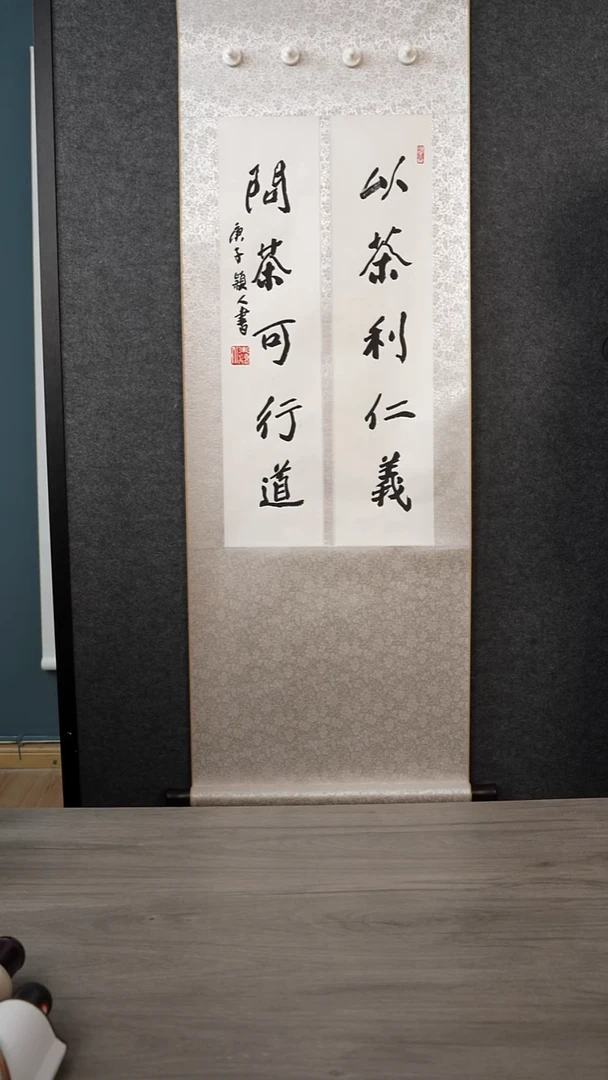 以茶利仁義
問茶可行道
庚子穎人書